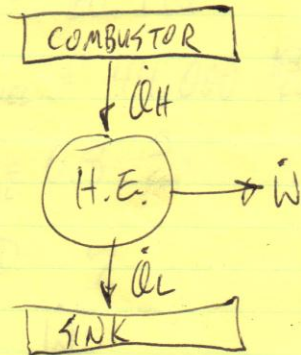 COMBUSTOR
Q̇H
H.E.
Ẇ
Q̇L
SINK